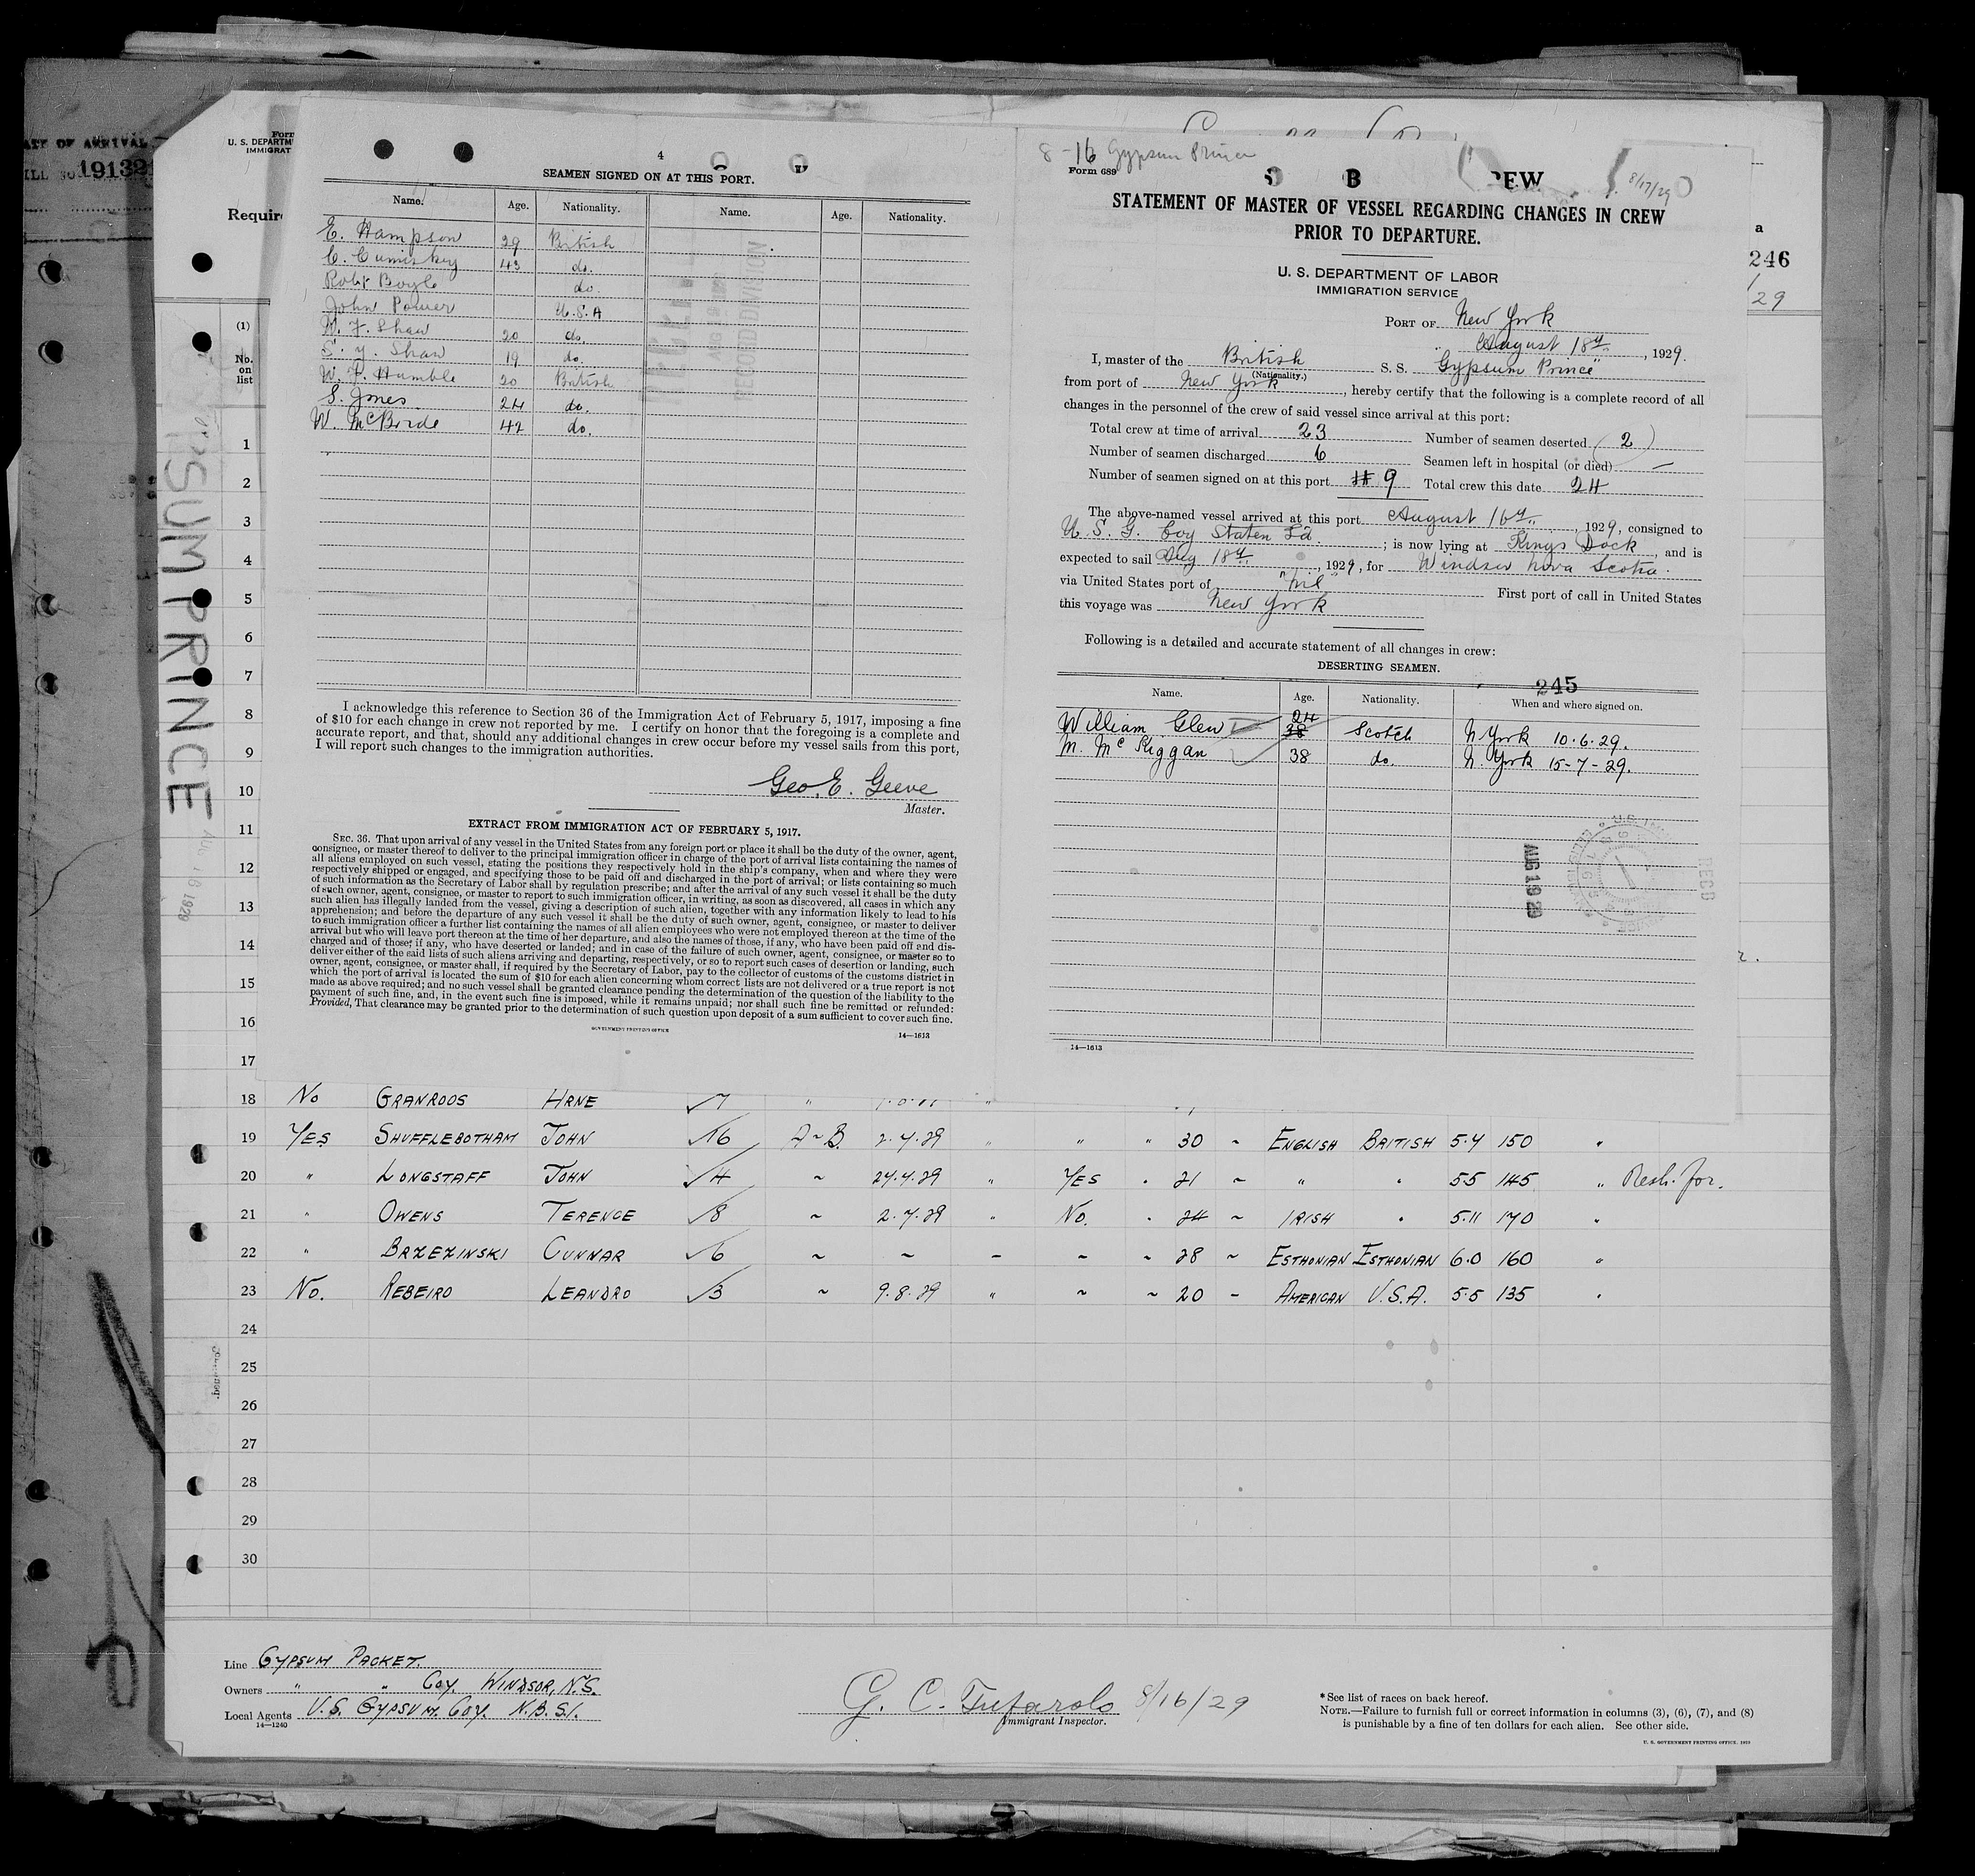 DATE OF ARRIVAL
191321
Form
U. S. DEPARTM
IMMIGRAT
Requir
(1)
No.
on
list
GYPSUM PRINCE
AUG 16 1929
4
SEAMEN SIGNED ON AT THIS PORT.
Name. Age. Nationality. Name. Age. Nationality.
E. Hampson 29 British
C. Cumiskey 43 do.
Robt Boyle do.
John Power U.S.A
W. F. Shaw 20 do.
S. Y. Shaw 19 do.
W. P. Humble 20 British
S. Jones 24 do.
W. McBride 42 do.
RECORD DIVISION
I acknowledge this reference to Section 36 of the Immigration Act of February 5, 1917, imposing a fine
of $10 for each change in crew not reported by me. I certify on honor that the foregoing is a complete and
accurate report, and that, should any additional changes in crew occur before my vessel sails from this port,
I will report such changes to the immigration authorities.
Geo. E. Geeve
Master.
EXTRACT FROM IMMIGRATION ACT OF FEBRUARY 5, 1917.
SEC. 36. That upon arrival of any vessel in the United States from any foreign port or place it shall be the duty of the owner, agent,
consignee, or master thereof to deliver to the principal immigration officer in charge of the port of arrival lists containing the names of
all aliens employed on such vessel, stating the positions they respectively hold in the ship's company, when and where they were
respectively shipped or engaged, and specifying those to be paid off and discharged in the port of arrival; or lists containing so much
of such information as the Secretary of Labor shall by regulation prescribe; and after the arrival of any such vessel it shall be the duty
of such owner, agent, consignee, or master to report to such immigration officer, in writing, as soon as discovered, all cases in which any
such alien has illegally landed from the vessel, giving a description of such alien, together with any information likely to lead to his
apprehension; and before the departure of any such vessel it shall be the duty of such owner, agent, consignee, or master to deliver
to such immigration officer a further list containing the names of all alien employees who were not employed thereon at the time of the
arrival but who will leave port thereon at the time of her departure, and also the names of those, if any, who have been paid off and dis-
charged and of those, if any, who have deserted or landed; and in case of the failure of such owner, agent, consignee, or master so to
deliver either of the said lists of such aliens arriving and departing, respectively, or so to report such cases of desertion or landing, such
owner, agent, consignee, or master shall, if required by the Secretary of Labor, pay to the collector of customs of the customs district in
which the port of arrival is located the sum of $10 for each alien concerning whom correct lists are not delivered or a true report is not
made as above required; and no such vessel shall be granted clearance pending the determination of the question of the liability to the
payment of such fine, and, in the event such fine is imposed, while it remains unpaid; nor shall such fine be remitted or refunded:
Provided, That clearance may be granted prior to the determination of such question upon deposit of a sum sufficient to cover such fine.
GOVERNMENT PRINTING OFFICE
14—1613
8-16 Gypsum Prince
Form 689
8/17/29
STATEMENT OF MASTER OF VESSEL REGARDING CHANGES IN CREW
PRIOR TO DEPARTURE.
U. S. DEPARTMENT OF LABOR
IMMIGRATION SERVICE
PORT OF New York
August 18th, 1929.
I, master of the British S. S. "Gypsum Prince"
(Nationality.)
from port of New York, hereby certify that the following is a complete record of all
changes in the personnel of the crew of said vessel since arrival at this port:
Total crew at time of arrival 23 Number of seamen deserted (2)
Number of seamen discharged 6 Seamen left in hospital (or died) —
Number of seamen signed on at this port 9 Total crew this date 24
The above-named vessel arrived at this port August 16th, 1929, consigned to
U. S. G. Coy Staten Id.; is now lying at Kings Dock, and is
expected to sail Aug 18th, 1929, for Windsor Nova Scotia.
via United States port of "nil" First port of call in United States
this voyage was New York
Following is a detailed and accurate statement of all changes in crew:
DESERTING SEAMEN.
245
Name. Age. Nationality. When and where signed on.
William Glew 24 38 Scotch N York 10.6.29.
M. McKiggan 38 do. N. York 15-7-29.
AUG 19 29
RECD
14—1613
a
246
29
1
2
3
4
5
6
7
8
9
10
11
12
13
14
15
16
17
18 No GRANROOS ARNE 7 "
19 YES SHUFFLEBOTHAM JOHN 16 A~B 2.7.29 " " " 30 ~ ENGLISH BRITISH 5.4 150 "
20 " LONGSTAFF JOHN 4 ~ 24.7.29 " YES " 21 ~ " " 5.5 145 "
21 " OWENS TERENCE 8 ~ 2.7.29 " No. " 24 ~ IRISH " 5.11 170 "
22 " BRZEZINSKI GUNNAR 6 ~ ~ - ~ " 28 ~ ESTHONIAN ESTHONIAN 6.0 160 "
23 No. REBEIRO LEANDRO 3 ~ 9.8.29 " ~ ~ 20 - AMERICAN U.S.A. 5.5 135 "
24
25
26
27
28
29
30
Line GYPSUM PACKET.
Owners " " COY. WINDSOR, N.S.
Local Agents U.S. GYPSUM. COY. N.B. S.I.
14—1240
G. C. Tufarolo 8/16/29
Immigrant Inspector.
* See list of races on back hereof.
NOTE.—Failure to furnish full or correct information in columns (3), (6), (7), and (8)
is punishable by a fine of ten dollars for each alien. See other side.
U. S. GOVERNMENT PRINTING OFFICE